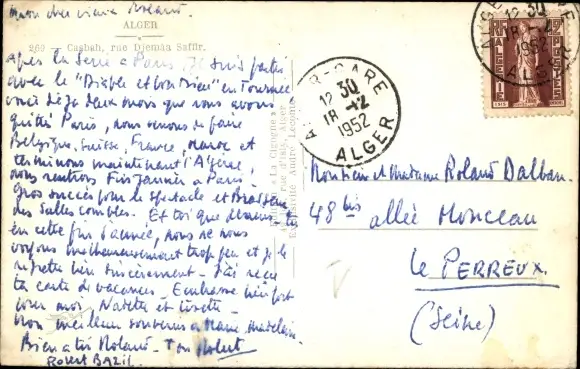 Mon cher vieux Roland.
ALGER
269 - Casbah, rue Djemâa Saffir.
Après la Série à Paris, je suis parti
avec le "Diable et bon Dieu" en Tournée
voici déjà deux mois que nous avons
quitté Paris, nous venons de faire
Belgique, Suisse, France, Maroc et
terminons maintenant l'Algérie,
nous rentrons Fin Janvier à Paris -
Gros succès pour le spectacle et Brasseur
des salles combles. Et toi que deviens-tu
en cette fin d'année, nous ne nous
voyons malheureusement trop peu et je le
regrette bien sincèrement - J'ai reçu
ta carte de vacances - Embrasse bien fort
pour moi Nadette et
Mon meilleur souvenir à Madeleine
Bien à toi Roland - Ton Robert
Robert BAZIL.
"La Cigogne"
ALGER-GARE
12 30
18 -12
1952
ALGER
ALGER
12 30
18 -12
1952
ALGER
RF
ALGERIE
POSTES
Monsieur et Madame Roland Dalban
48 bis allée Monceau
le PERREUX
(Seine)